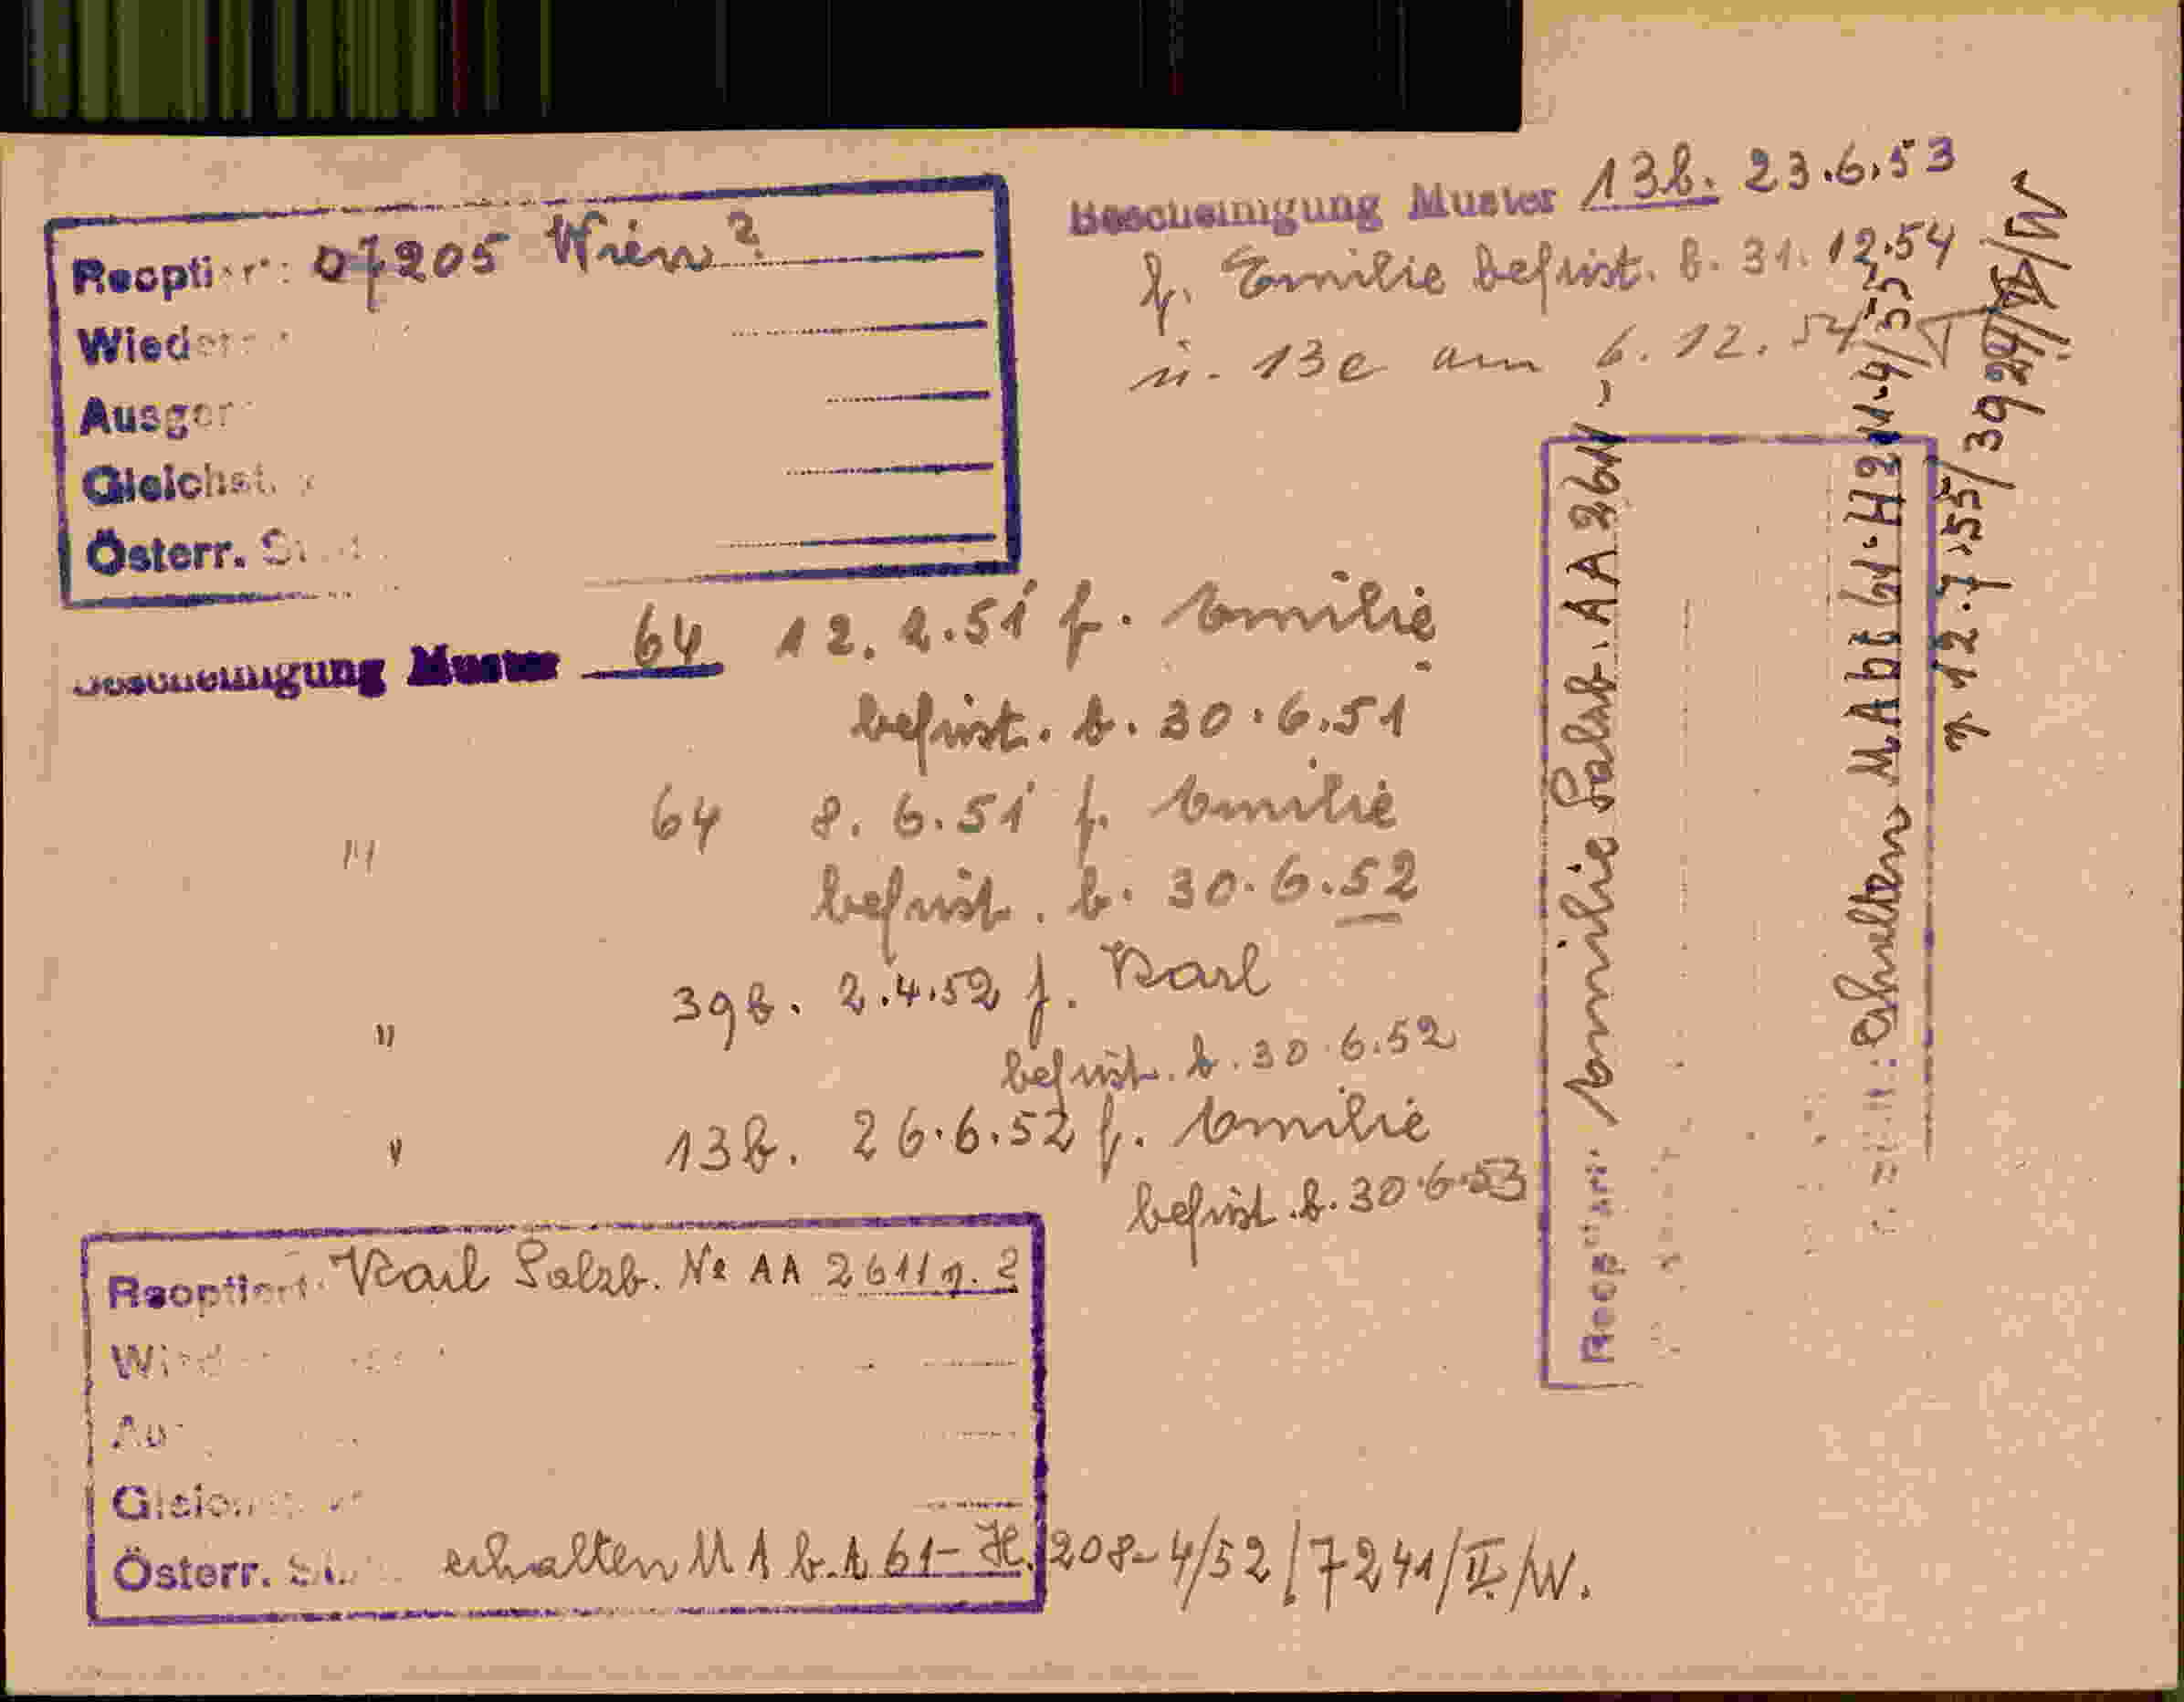 Reoptiert: 07205 Wien 2
Wieder
Ausger
Gleichst.
Österr. St
Bescheinigung Muster 13b. 23.6.53
f. Emilie befrist. b. 31.12.54
u. 13e am 6.12.54
Bescheinigung Muster 64 12.2.51 f. Emilie
befrist. b. 30.6.51
" 64 8.6.51 f. Emilie
befrist. b. 30.6.52
" 39b. 2.4.52 f. Karl
befrist. b. 30.6.52
" 13b. 26.6.52 f. Emilie
befrist. b. 30.6.53
Reoptiert: Karl Salzb. No AA 2611
Wied
Au
Gleich
Österr. St erhalten MAb.A 61-H.208-4/52/7241/II/W.
Reoptiert: Emilie Salzb. AA 2611-
erhalten MAbt 61-H211-4/55
v. 12.7.55/3924/II/W